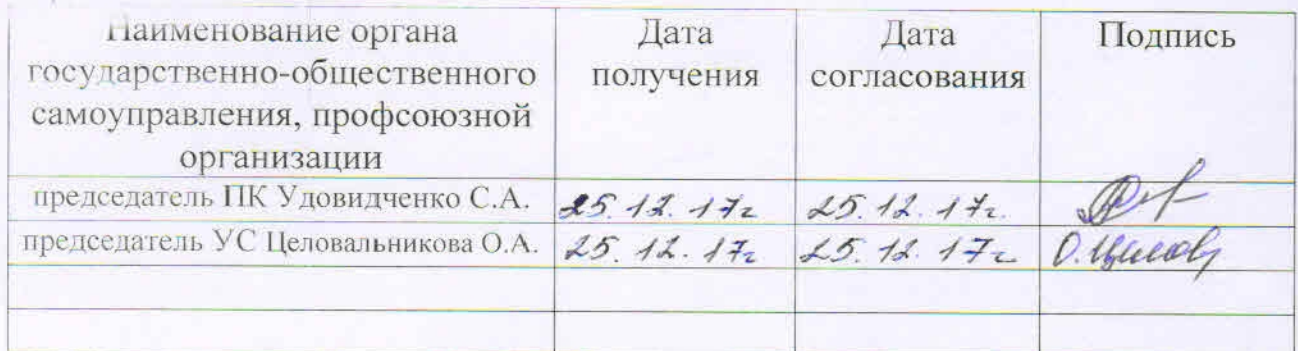 Наименование органа государственно-общественного самоуправления, профсоюзной организации
Дата получения
Дата согласования
Подпись
председатель ПК Удовидченко С.А. 25.12.17г 25.12.17г.
председатель УС Целовальникова О.А. 25.12.17г 25.12.17г О.Целов